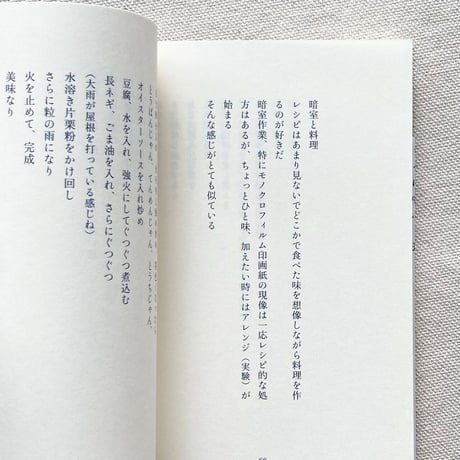 暗室と料理
レシピはあまり見ないでどこかで食べた味を想像しながら料理を作
るのが好きだ
暗室作業、特にモノクロフィルム印画紙の現像は一応レシピ的な処
方はあるが、ちょっとひと味、加えたい時にはアレンジ（実験）が
始まる
そんな感じがとても似ている
とうばんじゃん、てんめんじゃん、とうちじゃん、
オイスターソースを入れ炒め
豆腐、水を入れ、強火にしてぐつぐつ煮込む
長ネギ、ごま油を入れ、さらにぐつぐつ
（大雨が屋根を打っている感じね）
水溶き片栗粉をかけ回し
さらに粒の雨になり
火を止めて、完成
美味なり